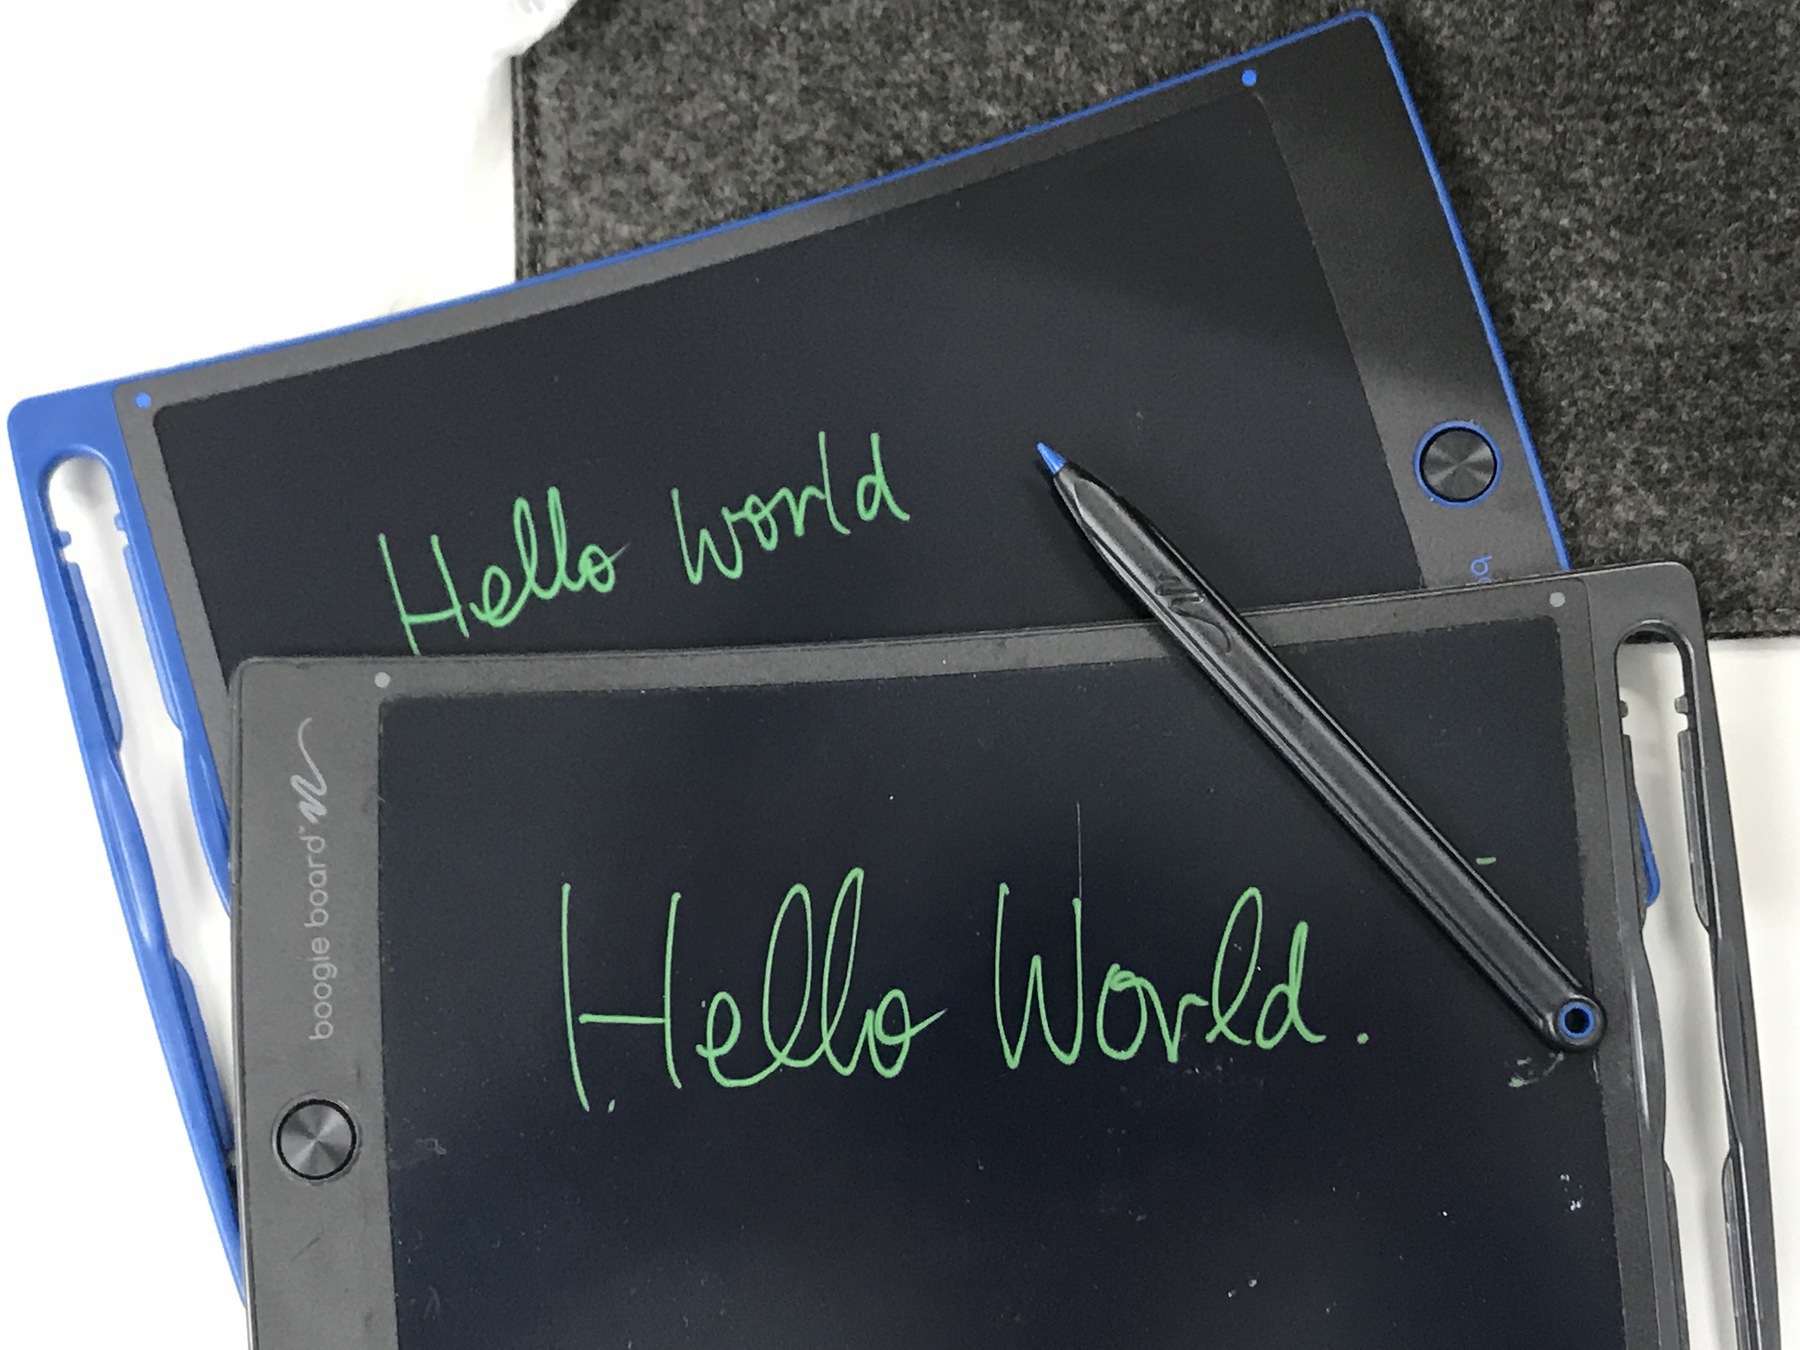 Hello World
boogie board™
Hello World.